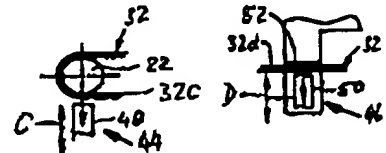 32
22
32c
C
48
44
52
32d
32
D
50
46